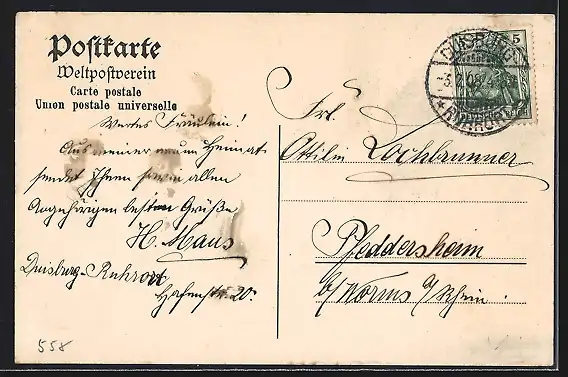 Postkarte
Weltpostverein
Carte postale
Union postale universelle
Wertes Fräulein!
Aus meiner neuen Heimat
sendet Ihnen sowie allen
Angehörigen besten Grüße
H. Maus
Duisburg-Ruhrort
Hafenstr. 20.
DUISBURG
5
RUHRORT
Frl.
Ottilie Lochbrunner
Pfeddersheim
b/Worms a/Rhein.
558